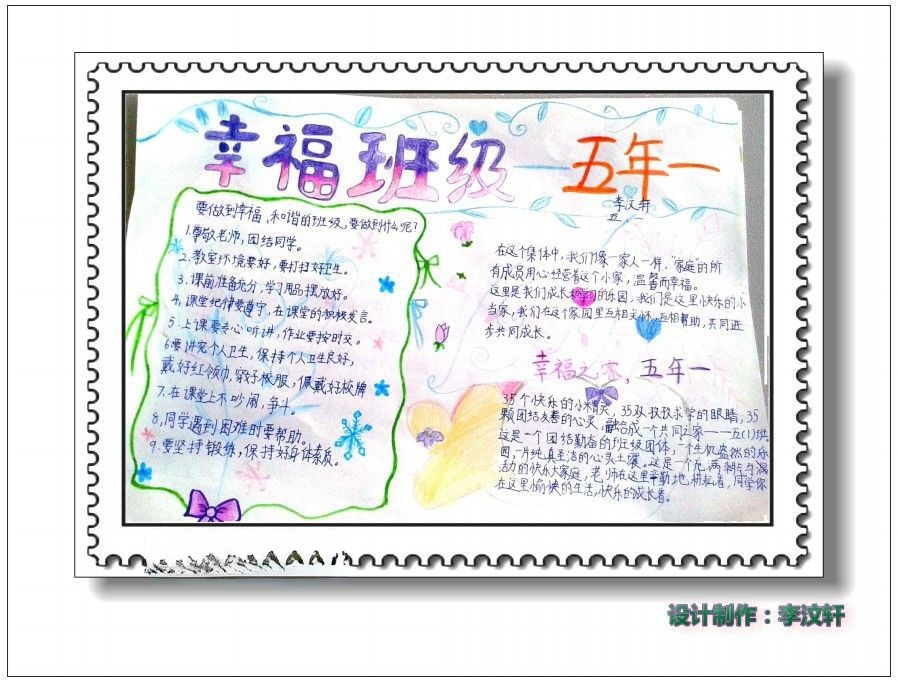 幸福班级 — 五年一
李汶轩
五.一
要做到幸福、和谐的班级,要做到什么呢?
1.尊敬老师,团结同学。
2.教室环境要好,要打扫好卫生。
3.课前准备充分,学习用品摆放好。
4.课堂纪律要遵守,在课堂的积极发言。
5.上课要专心听讲,作业要按时交。
6.要讲究个人卫生,保持个人卫生良好,
戴好红领巾,穿好校服,佩戴好校牌
7.在课堂上不吵闹,争斗。
8.同学遇到困难时要帮助。
9.要坚持锻练,保持好身体素质。
在这个集体中,我们像一家人一样,“家庭”的所
有成员用心经营着这个小家,温馨而幸福。
这里是我们成长和学习的乐园,我们是这里快乐的小
当家,我们在这个家园里互相关怀,互相帮助,共同进
步共同成长。
幸福之家、五年一
35个快乐的小精灵,35双孜孜求学的眼睛,35
颗团结友善的心灵,融合成一个共同之家——五(1)班。
这是一个团结勤奋的班级团体,一个生机盎然的乐
园,一片纯真圣洁的心灵土壤。这是一个充满朝气与活
动的快乐大家庭,老师在这里辛勤地耕耘着,同学们
在这里愉快的生活,快乐的成长着。
设计制作:李汶轩